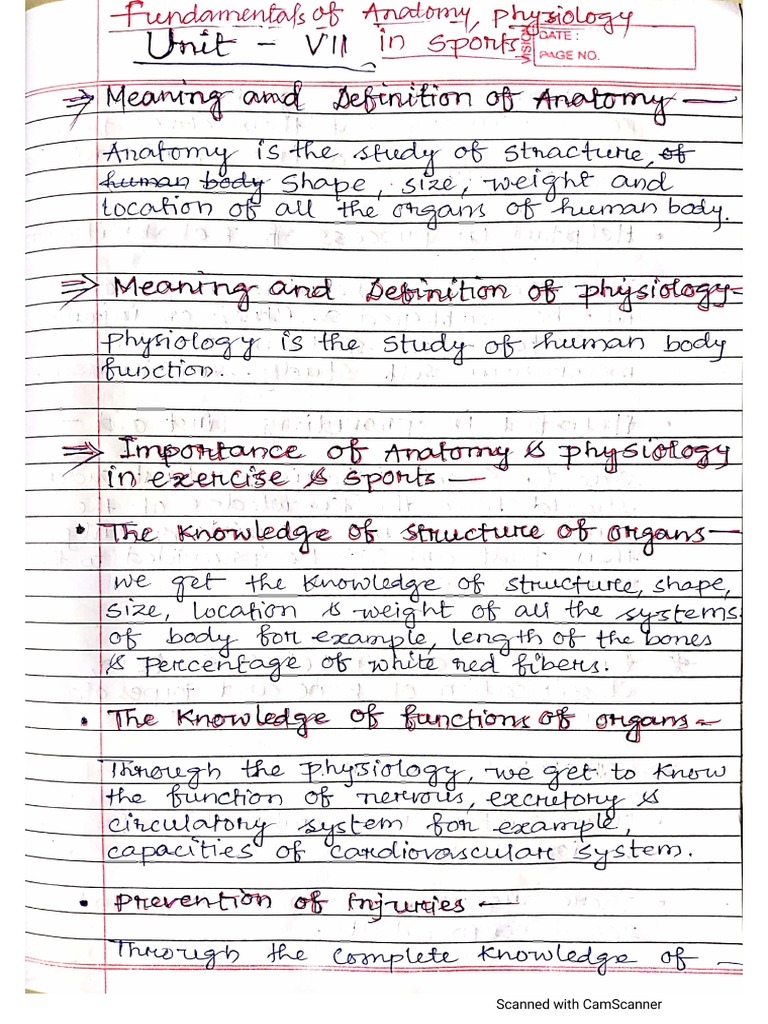 Fundamentals of Anatomy, Physiology
Unit - VII in Sports
DATE :
PAGE NO.
⇒ Meaning and Definition of Anatomy —
Anatomy is the study of stracture, of
human body shape, size, weight and
location of all the organs of human body.
⇒ Meaning and Definition of physiology-
Physiology is the study of human body
function.
⇒ Importance of Anatomy & physiology
in exercise & sports —
• The Knowledge of structure of organs—
we get the Knowledge of structure, shape,
size, location & weight of all the systems
of body for example, length of the bones
& percentage of white red fibers.
• The Knowledge of functions of organs-
Through the physiology, we get to know
the function of nervous, excretory &
circulatory system for example,
capacities of cardiovascular system.
• Prevention of Injuries —
Through the complete Knowledge of —
Scanned with CamScanner